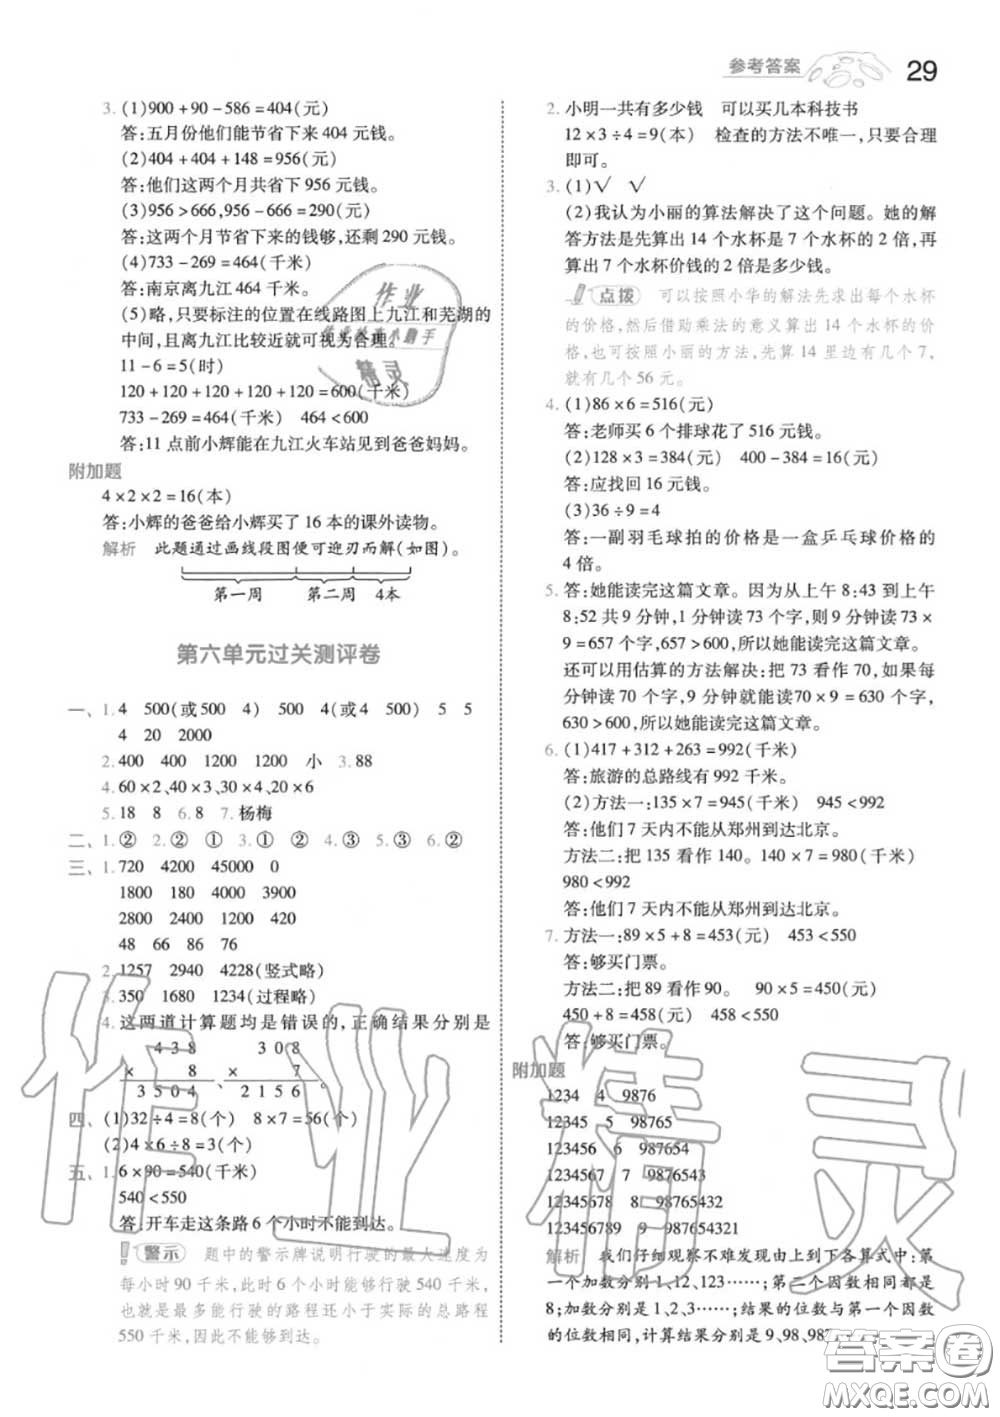 参考答案 29
3. (1)900+90-586=404(元)
答:五月份他们能节省下来 404 元钱。
(2)404+404+148=956(元)
答:他们这两个月共省下 956 元钱。
(3)956>666,956-666=290(元)
答:这两个月节省下来的钱够,还剩 290 元钱。
(4)733-269=464(千米)
答:南京离九江 464 千米。
(5)略,只要标注的位置在线路图上九江和芜湖的中间,且离九江比较近就可视为合理。
11-6=5(时)
120+120+120+120+120=600(千米)
733-269=464(千米) 464<600
答:11 点前小辉能在九江火车站见到爸爸妈妈。
附加题
4×2×2=16(本)
答:小辉的爸爸给小辉买了 16 本的课外读物。
解析 此题通过画线段图便可迎刃而解(如图)。
第一周 第二周 4本
第六单元过关测评卷
一、1. 4 500(或500 4) 500 4(或4 500) 5 5
4 20 2000
2. 400 400 1200 1200 小 3. 88
4. 60×2、40×3、30×4、20×6
5. 18 8 6. 8 7. 杨梅
二、1. ② 2. ② ① 3. ① ② 4. ③ 5. ③ 6. ②
三、1. 720 4200 45000 0
1800 180 4000 3900
2800 2400 1200 420
48 66 86 76
2. 1257 2940 4228(竖式略)
3. 350 1680 1234(过程略)
4. 这两道计算题均是错误的,正确结果分别是
4 3 8 3 0 8
× 8 、 × 7
3 5 0 4 2 1 5 6 。
四、(1)32÷4=8(个) 8×7=56(个)
(2)4×6÷8=3(个)
五、1. 6×90=540(千米)
540<550
答:开车走这条路 6 个小时不能到达。
警示 题中的警示牌说明行驶的最大速度为
每小时 90 千米,此时 6 个小时能够行驶 540 千米,
也就是最多能行驶的路程还小于实际的总路程
550 千米,因此不能够到达。
2. 小明一共有多少钱 可以买几本科技书
12×3÷4=9(本) 检查的方法不唯一,只要合理
即可。
3. (1)√ √
(2)我认为小丽的算法解决了这个问题。她的解
答方法是先算出 14 个水杯是 7 个水杯的 2 倍,再
算出 7 个水杯价钱的 2 倍是多少钱。
点拨 可以按照小华的解法先求出每个水杯
的价格,然后借助乘法的意义算出 14 个水杯的价
格,也可按照小丽的方法,先算 14 里边有几个 7,
就有几个 56 元。
4. (1)86×6=516(元)
答:老师买 6 个排球花了 516 元钱。
(2)128×3=384(元) 400-384=16(元)
答:应找回 16 元钱。
(3)36÷9=4
答:一副羽毛球拍的价格是一盒乒乓球价格的
4 倍。
5. 答:她能读完这篇文章。因为从上午 8:43 到上午
8:52 共 9 分钟,1 分钟读 73 个字,则 9 分钟读 73×
9=657 个字,657>600,所以她能读完这篇文章。
还可以用估算的方法解决:把 73 看作 70,如果每
分钟读 70 个字,9 分钟就能读 70×9=630 个字,
630>600,所以她能读完这篇文章。
6. (1)417+312+263=992(千米)
答:旅游的总路线有 992 千米。
(2)方法一:135×7=945(千米) 945<992
答:他们 7 天内不能从郑州到达北京。
方法二:把 135 看作 140。140×7=980(千米)
980<992
答:他们 7 天内不能从郑州到达北京。
7. 方法一:89×5+8=453(元) 453<550
答:够买门票。
方法二:把 89 看作 90。 90×5=450(元)
450+8=458(元) 458<550
答:够买门票。
附加题
1234 4 9876
12345 5 98765
123456 6 987654
1234567 7 9876543
12345678 8 98765432
123456789 9 987654321
解析 我们仔细观察不难发现由上到下各算式中:第
一个加数分别1、12、123……;第二个因数相同都是
8;加数分别是1、2、3……;结果的位数与第一个因数
的位数相同,计算结果分别是 9、98、987
作业精灵
作业
精灵
答案圈
MXQE.COM